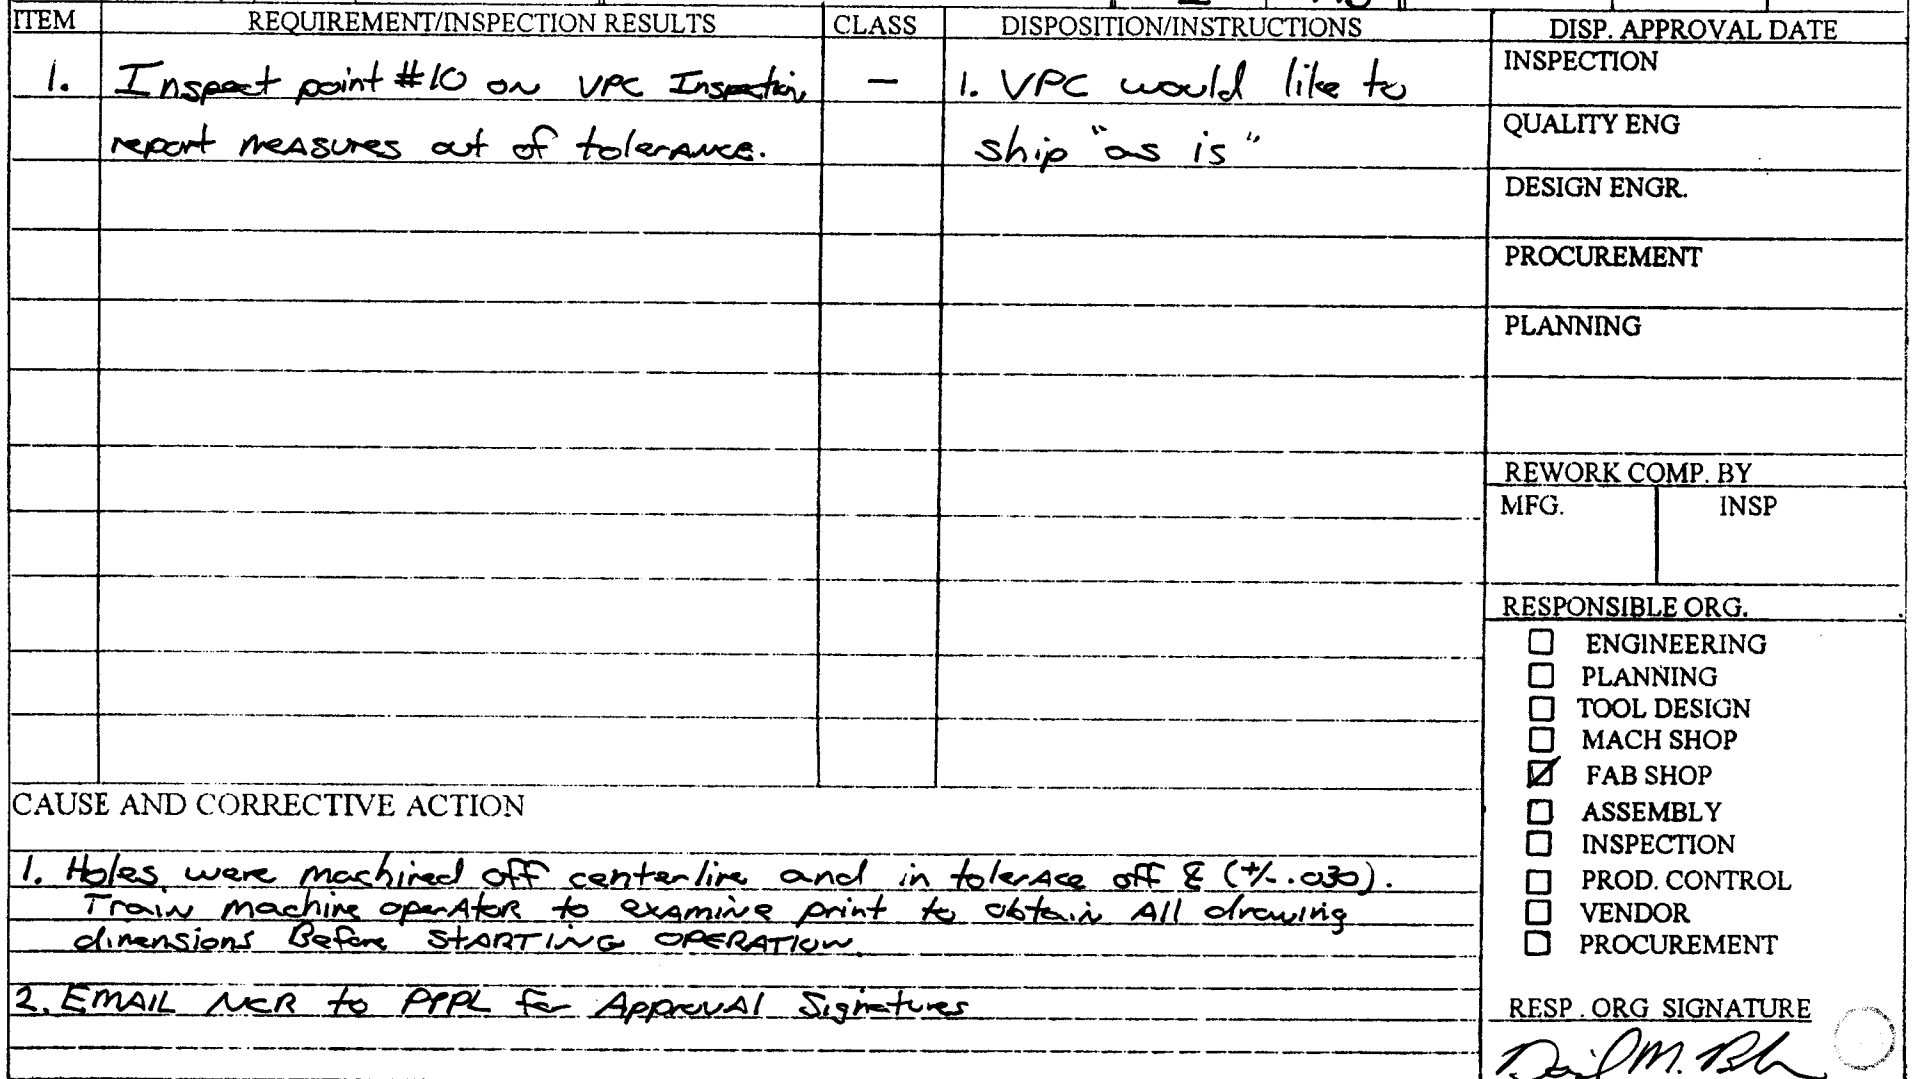 ITEM REQUIREMENT/INSPECTION RESULTS CLASS DISPOSITION/INSTRUCTIONS DISP. APPROVAL DATE
1. Inspect point #10 on VPC Inspection — 1. VPC would like to
report measures out of tolerance. ship "as is"
INSPECTION
QUALITY ENG
DESIGN ENGR.
PROCUREMENT
PLANNING
REWORK COMP. BY
MFG. INSP
RESPONSIBLE ORG.
ENGINEERING
PLANNING
TOOL DESIGN
MACH SHOP
FAB SHOP
ASSEMBLY
INSPECTION
PROD. CONTROL
VENDOR
PROCUREMENT
RESP. ORG SIGNATURE
CAUSE AND CORRECTIVE ACTION
1. Holes were machined off centerline and in tolerace off ℄ (+/-.030).
Train machine operator to examine print to obtain All drawing
dimensions Before STARTING OPERATION.
2. EMAIL NCR to PPPL for Approval Signatures